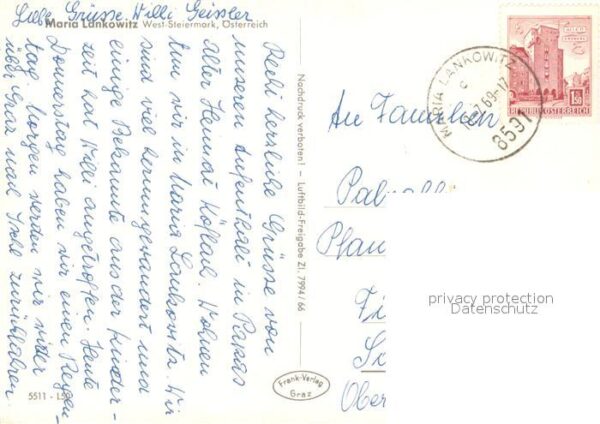 Liebe Grüsse. Willi Geissler
Maria Lankowitz West-Steiermark, Österreich
Recht herzliche Grüsse von
unsere Aufenthalt in Papas
alter Heimat Köflach. Wohnen
tun wir in Maria Lankowitz. Wir
sind viel herumgewandert und
einige Bekannte aus der Kinder-
zeit hat Willi angetroffen. Heute
Donnerstag haben wir einen Regen-
tag. Morgen werden wir wieder
über Graz nach zurückfahren.
5511 - L59
Nachdruck verboten! – Luftbild-Freigabe Zl. 7994/66
Frank-Verlag
Graz
MARIA LANKOWITZ
7.69-17
8591
1.50
REPUBLIK ÖSTERREICH
An Familien
Pfan
Ober
privacy protection
Datenschutz